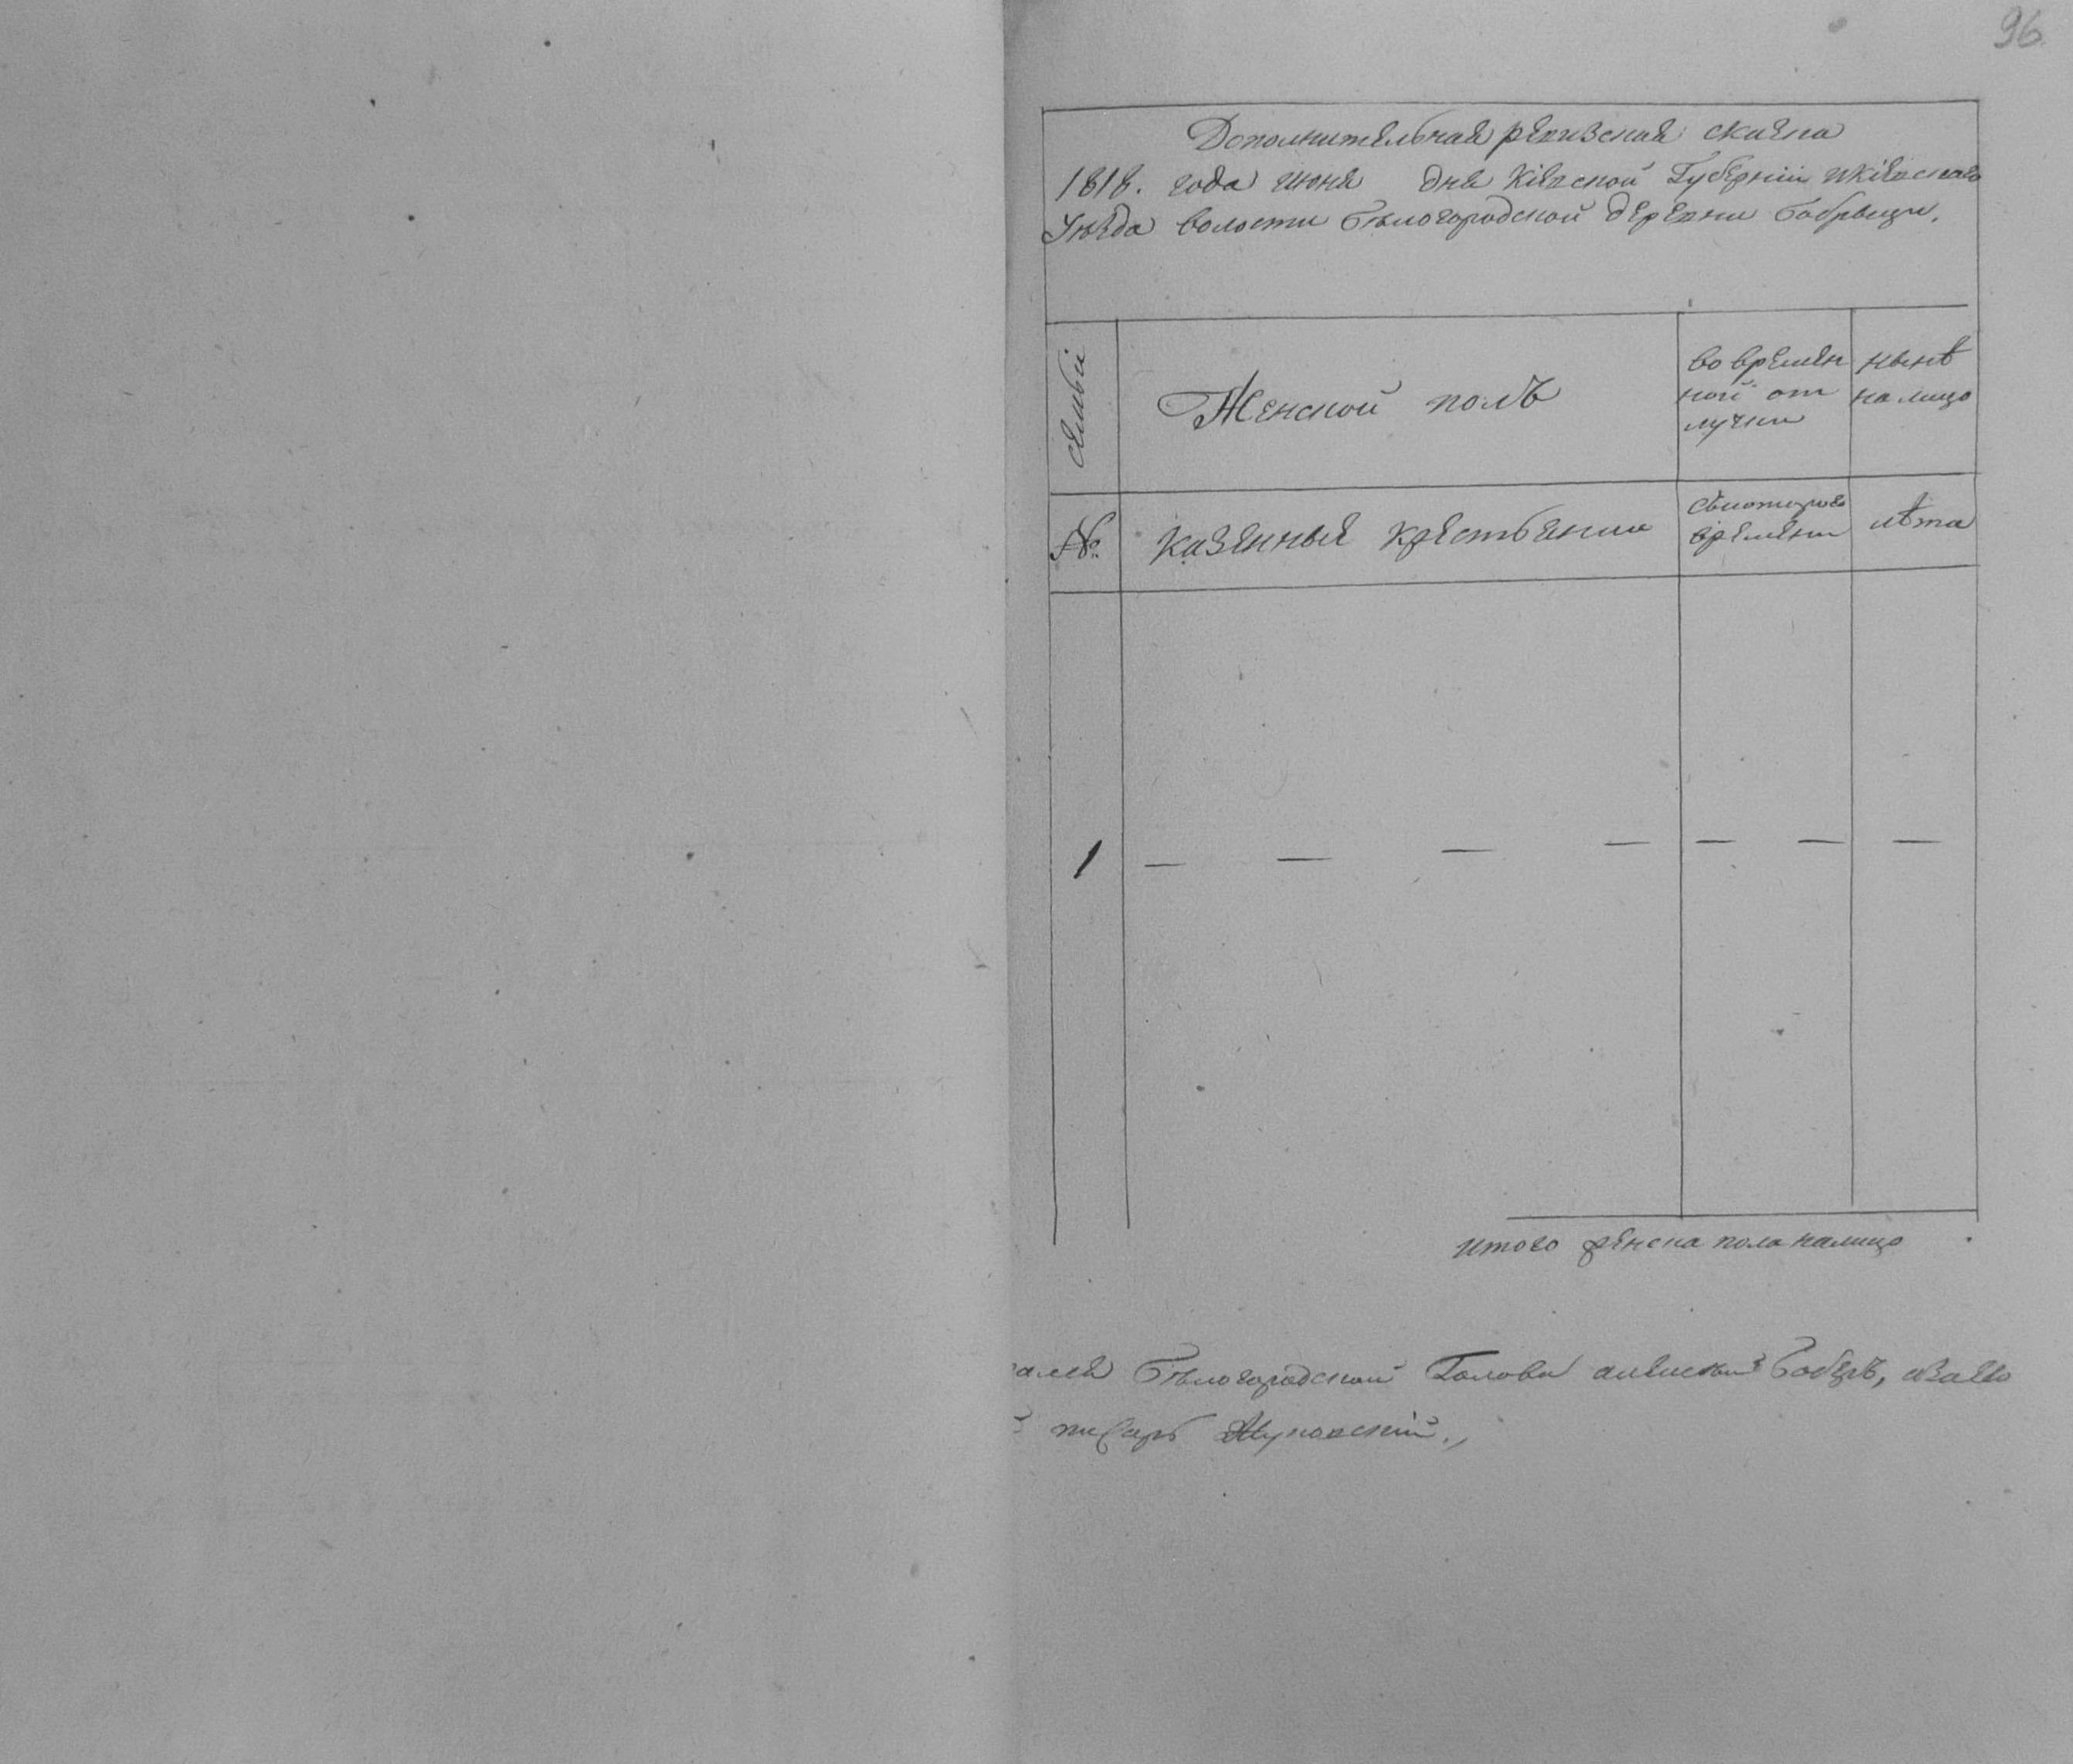 96
Дополнительная ревизская скаска
1818. года июня дня Кіевской Губерніи и Кіевскаго
Уезда волости Бѣлогородской деревни Бобрыци.
Семьи
Женской полъ
во времен
ной от
лучки
нынѣ
на лицо
№
казенные крестьяни
съкоторого
времени
лѣта
1 — — — — — — —
итого женска пола налицо
Бѣлогородской Голова Бобръ,
писарь Жуковскій.